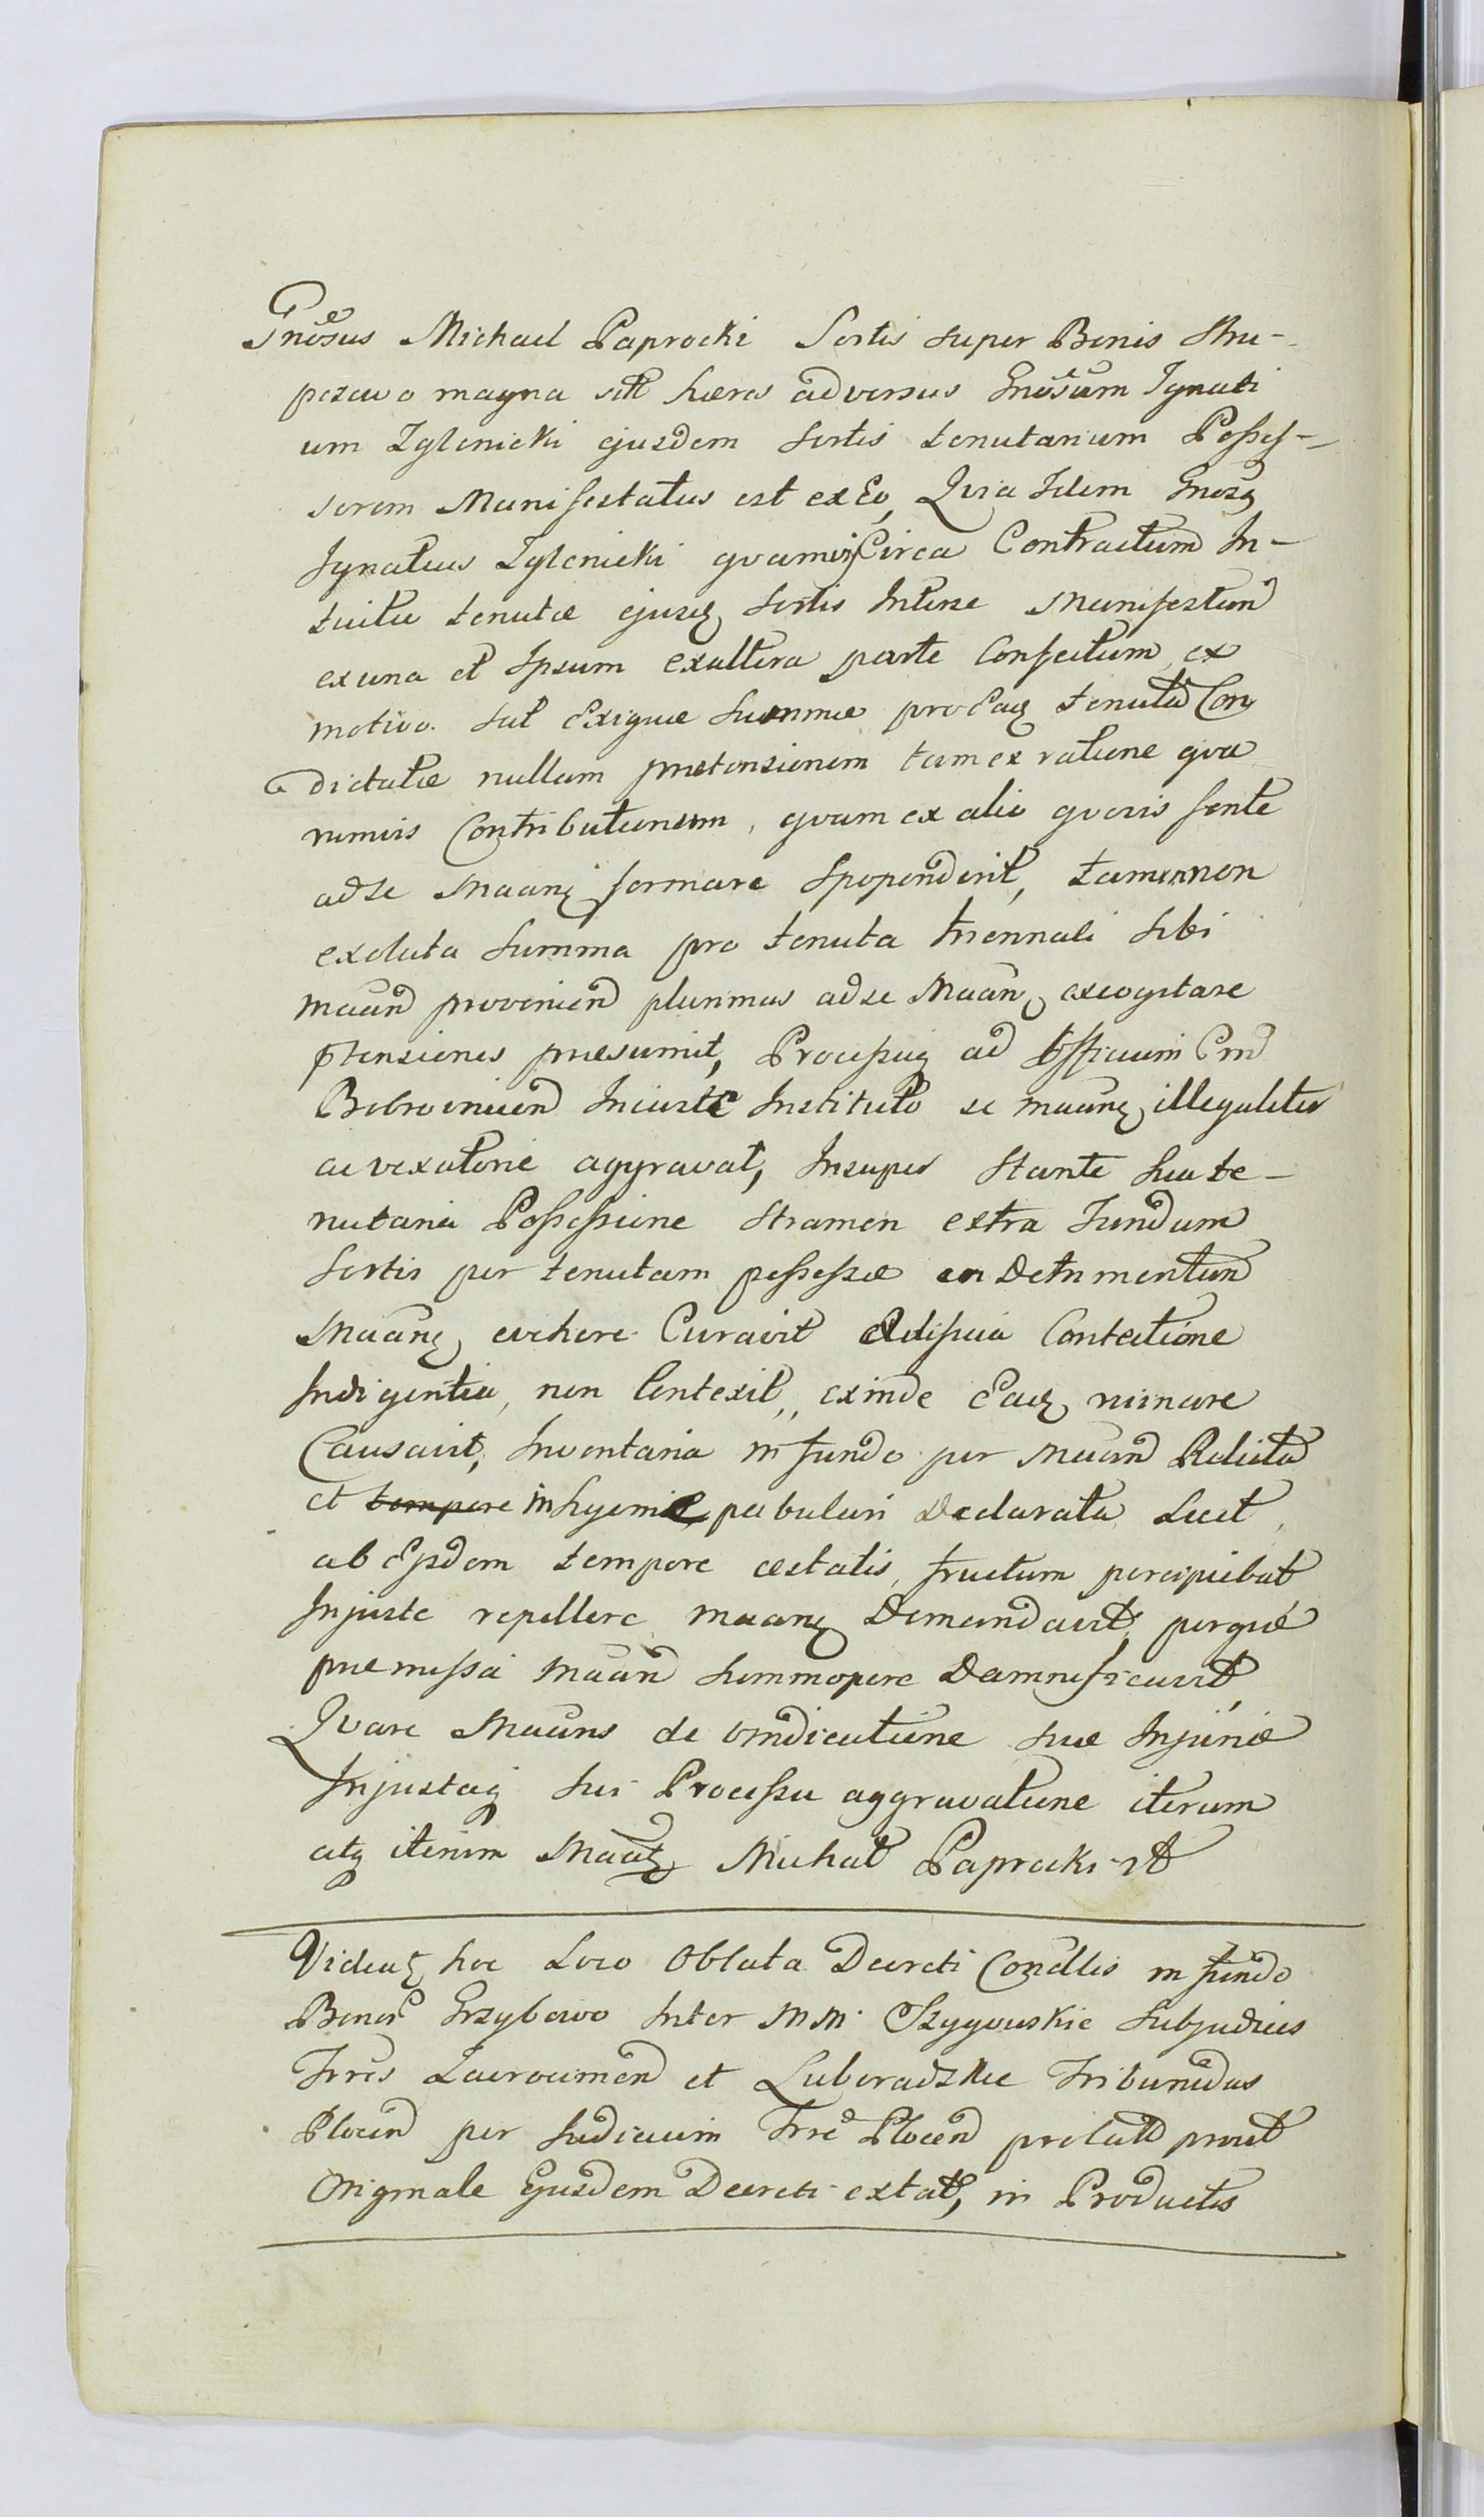 Gnosus Michael Paprocki Sortis super Bonis Stru-
pczewo magna sitt hæres adversus Gnosum Ignati
um Zglenicki ejusdem sortis tenutarium Posses-
sorem Manifestatus est ex Eo, Quia Idem Gnosq
Ignatius Zglenicki qvamvis Circa Contractum In-
tuitu tenutæ ejusq sortis Interse Manifestum
ex una et Ipsum ex altera parte Confectum, ex
motivo sat Exiguæ Summæ pro Eaq tenuta Con
dictatæ nullam prætensionem tam ex ratione qva
rumvis Contributionum, qvam ex alio qvovis fonte
ad se Maanq formare Spoponderit, tamen non
exoluta Summa pro tenuta triennali sibi
Maand provenien plurimas ad se Maanq excogitare
ptensiones præsumit, Processuq ad Officium Cmd
Bobrovnicen Iniuste Instituto se maanq illegaliter
ac vexatorie aggravat, Insuper Stante sua te-
nutaria Possessione Stramen extra Fundum
Sortis per tenutam possessæ in Detrimentum
Maanq evehere Curavit Ædificia Contectione
Indigentia, non Contexit, exinde Eaq ruinare
Causavit, Inventaria in fundo per Maan Relicta
et tempore in hyemie pabulari Declarata Licet
ab Eisdem tempore æstatis, fructum percipiebat
Injuste repellere maanq Demandavit, perqve
præmissa Maan Summopere Damnificavit,
Qvare Maans de vindicatione suæ Injuriæ
Injustaq sui Processu aggravatione iterum
atq iterum Maatq Michał Paprocki
Videatq hoc Loco Oblata Decreti Condllis in fundo
Bonor Grzybowo Inter MM. Szygowskie Subjudices
Trres Zawrocimen et Luboradzkie Tribunidas
Plocen per Judicium Trre Plocen prolati prout
Originale Ejusdem Decreti extat, in Productis